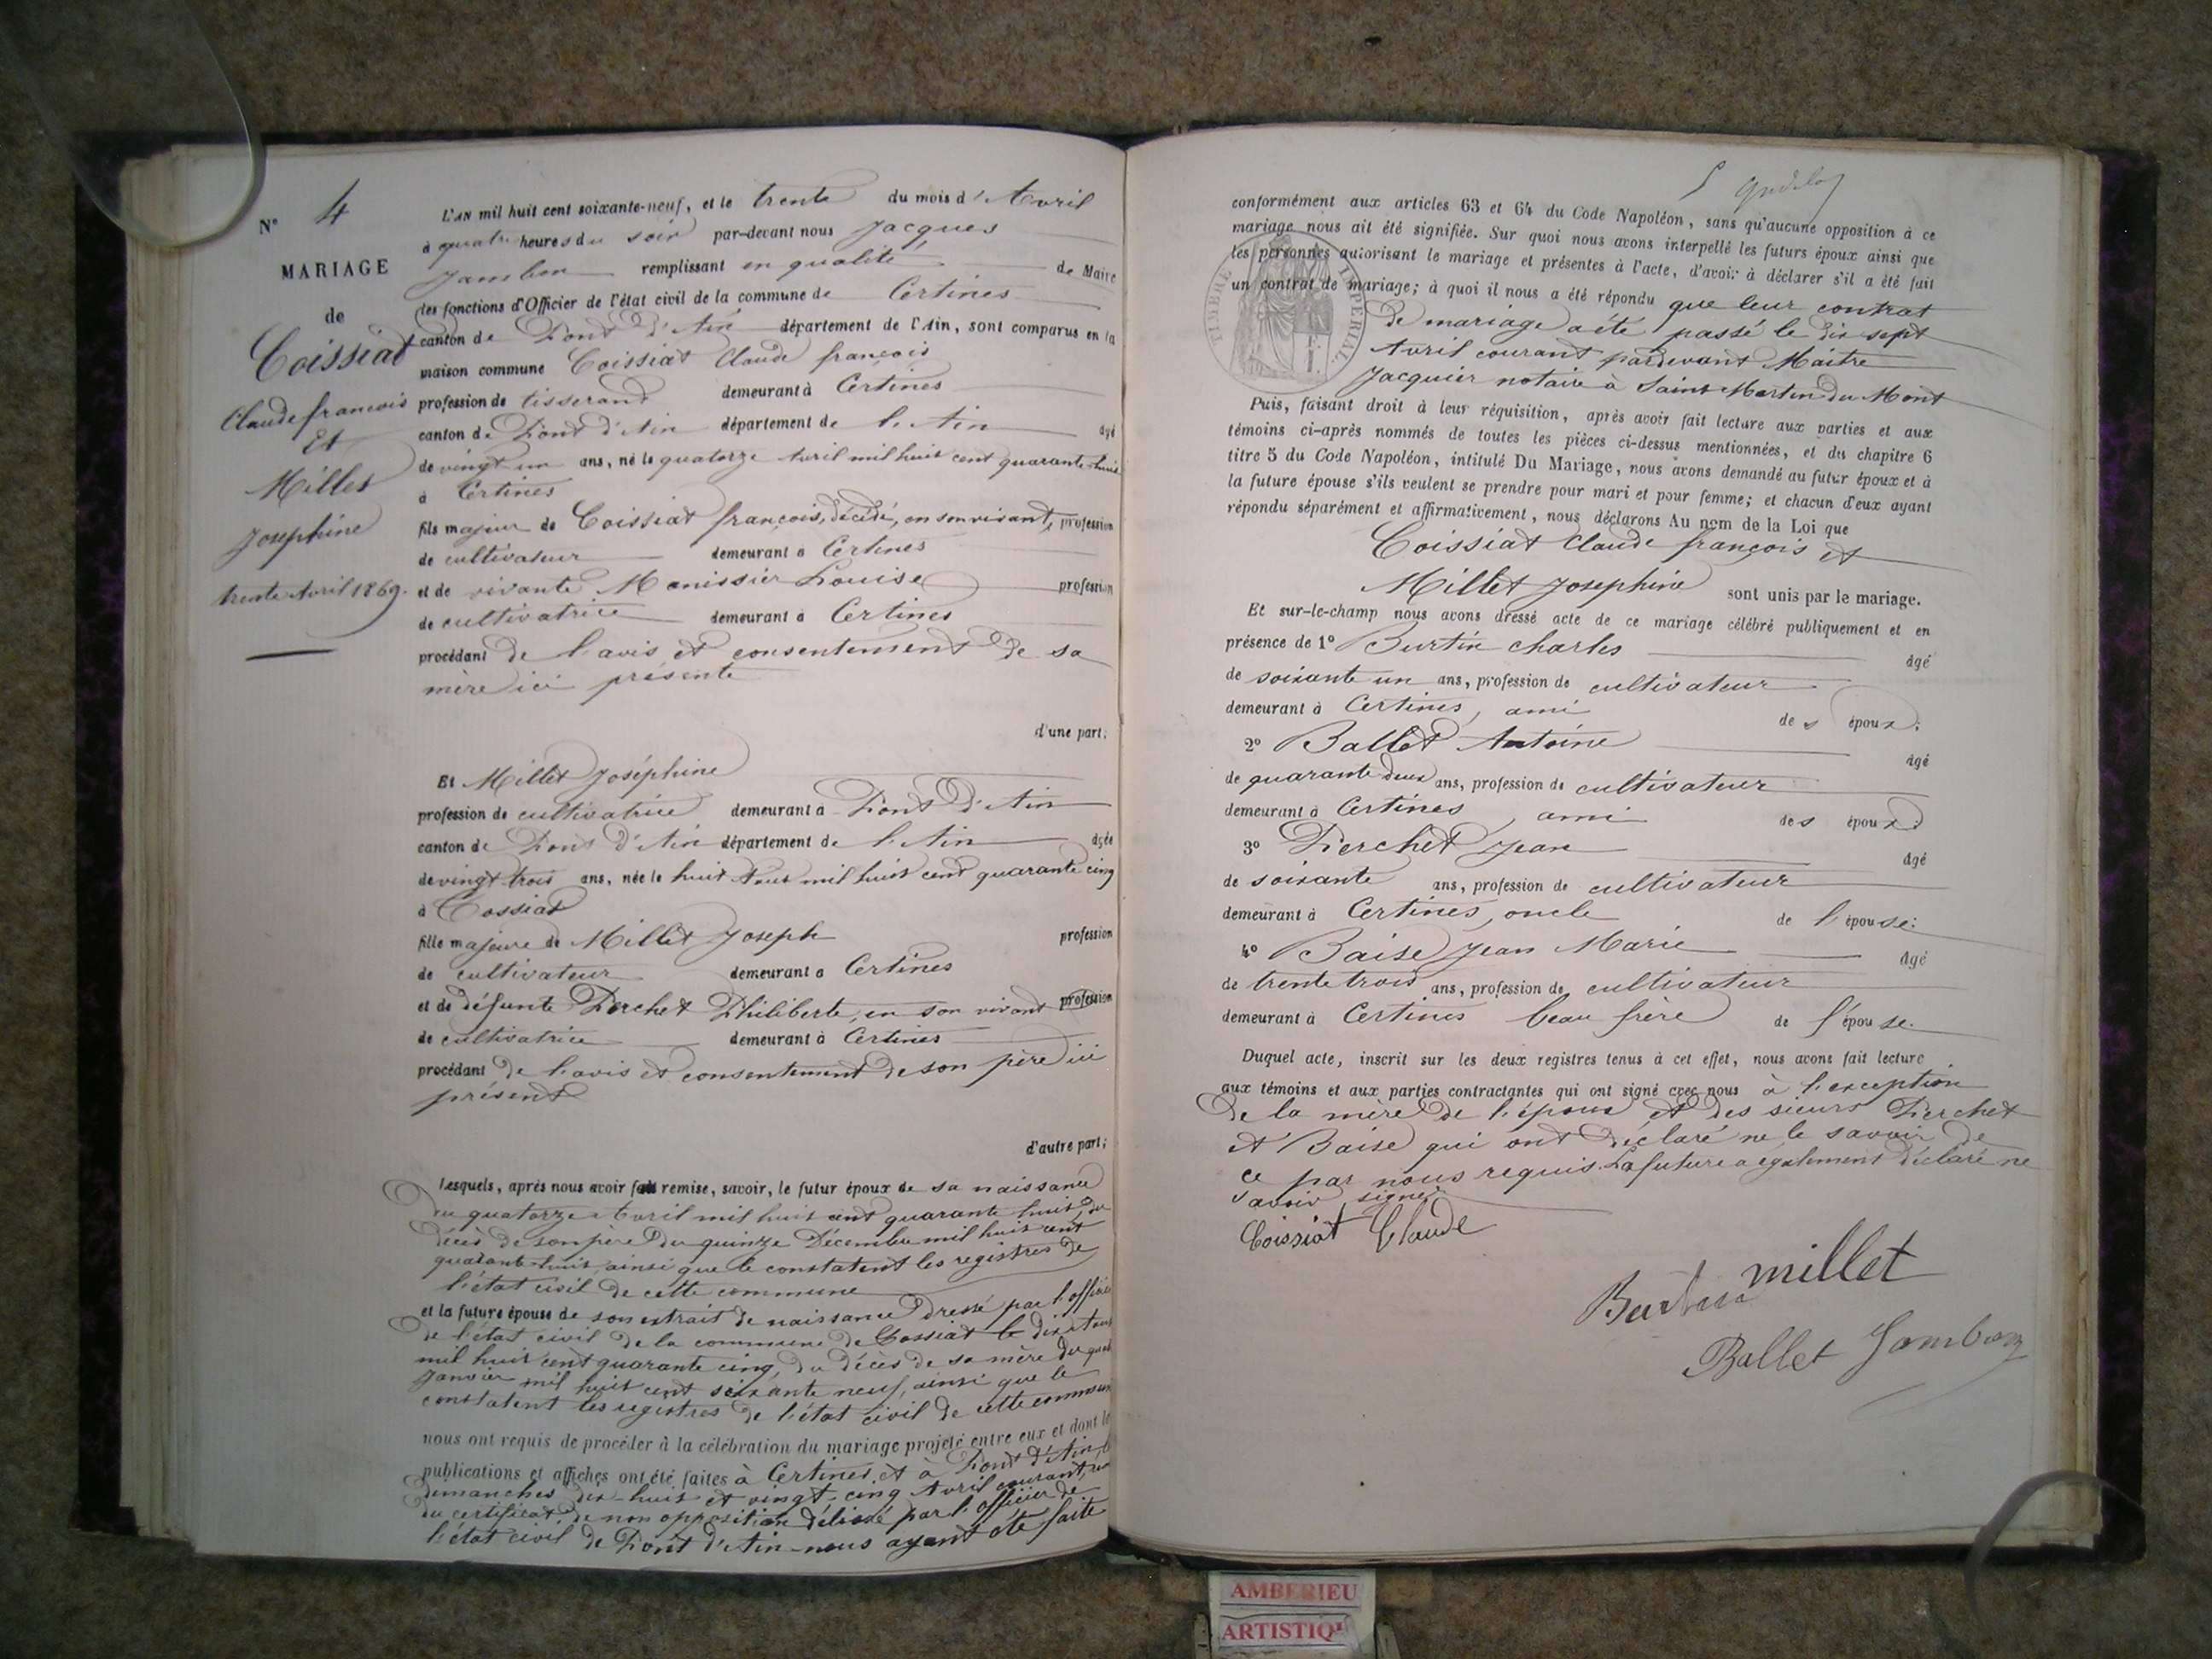 N° 4
MARIAGE
de
Coissiat
Claude françois
Et
Millet
Joséphine
trente Avril 1869.
L'AN mil huit cent soixante-neuf, et le trente du mois d'Avril
à quatre heures du soir par-devant nous Jacques
Jambon remplissant en qualité de Maire
les fonctions d'Officier de l'état civil de la commune de Certines
canton de Pont d'Ain département de l'Ain, sont comparus en la
maison commune Coissiat Claude françois
profession de tisserand demeurant à Certines
canton de Pont d'Ain département de l'Ain âgé
de vingt un ans, né le quatorze Avril mil huit cent quarante-huit
à Certines
fils majeur de Coissiat françois, décédé, en son vivant, profession
de cultivateur demeurant à Certines
et de vivante Manissier Louise profession
de cultivatrice demeurant à Certines
procédant de l'avis et consentement de sa
mère ici présente
d'une part;
Et Millet Joséphine
profession de cultivatrice demeurant à Pont d'Ain
canton de Pont d'Ain département de l'Ain âgée
de vingt trois ans, née le huit Aout mil huit cent quarante cinq
à Tossiat
fille majeure de Millet Joseph profession
de cultivateur demeurant à Certines
et de défunte Perchet Philiberte, en son vivant profession
de cultivatrice demeurant à Certines
procédant de l'avis et consentement de son père ici
présent
d'autre part;
Lesquels, après nous avoir fait remise, savoir, le futur époux de sa naissance
du quatorze Avril mil huit cent quarante huit, du
décès de son père du quinze Décembre mil huit cent
quarante-huit, ainsi que le constatent les registres de
l'état civil de cette commune
et la future épouse de son extrait de naissance dressé par l'officier
de l'état civil de la commune de Tossiat le dix Aout
mil huit cent quarante cinq, du décès de sa mère du
Janvier mil huit cent soixante neuf, ainsi que le
constatent les registres de l'état civil de cette commune
nous ont requis de procéder à la célébration du mariage projeté entre eux et dont les
publications et affiches ont été faites à Certines et à Pont d'Ain, les
dimanches dix-huit et vingt-cinq Avril courant,
du certificat de non opposition délivré par l'officier de
l'état civil de Pont d'Ain nous ayant été faite
conformément aux articles 63 et 64 du Code Napoléon, sans qu'aucune opposition à ce
mariage nous ait été signifiée. Sur quoi nous avons interpellé les futurs époux ainsi que
les personnes autorisant le mariage et présentes à l'acte, d'avoir à déclarer s'il a été fait
un contrat de mariage; à quoi il nous a été répondu que leur contrat
de mariage a été passé le dix sept
Avril courant pardevant Maître
Jacquier notaire à Saint Martin du Mont
TIMBRE IMPÉRIAL
Puis, faisant droit à leur réquisition, après avoir fait lecture aux parties et aux
témoins ci-après nommés de toutes les pièces ci-dessus mentionnées, et du chapitre 6
titre 5 du Code Napoléon, intitulé Du Mariage, nous avons demandé au futur époux et à
la future épouse s'ils veulent se prendre pour mari et pour femme; et chacun d'eux ayant
répondu séparément et affirmativement, nous déclarons Au nom de la Loi que
Coissiat Claude françois et
Millet Joséphine sont unis par le mariage.
Et sur-le-champ nous avons dressé acte de ce mariage célébré publiquement et en
présence de 1° Burtin Charles âgé
de soixante un ans, profession de cultivateur
demeurant à Certines, ami des époux;
2° Ballet Antoine âgé
de quarante deux ans, profession de cultivateur
demeurant à Certines, ami des époux;
3° Perchet Jean âgé
de soixante ans, profession de cultivateur
demeurant à Certines, oncle de l'épouse;
4° Baise Jean Marie âgé
de trente trois ans, profession de cultivateur
demeurant à Certines beau frère de l'épouse.
Duquel acte, inscrit sur les deux registres tenus à cet effet, nous avons fait lecture
aux témoins et aux parties contractantes qui ont signé avec nous à l'exception
de la mère de l'époux et des sieurs Perchet
et Baise qui ont déclaré ne le savoir de
ce par nous requis. La future a également déclaré ne
savoir signer
Coissiat Claude
millet
Burtin
Ballet Jambon
AMBERIEU
ARTISTIQ